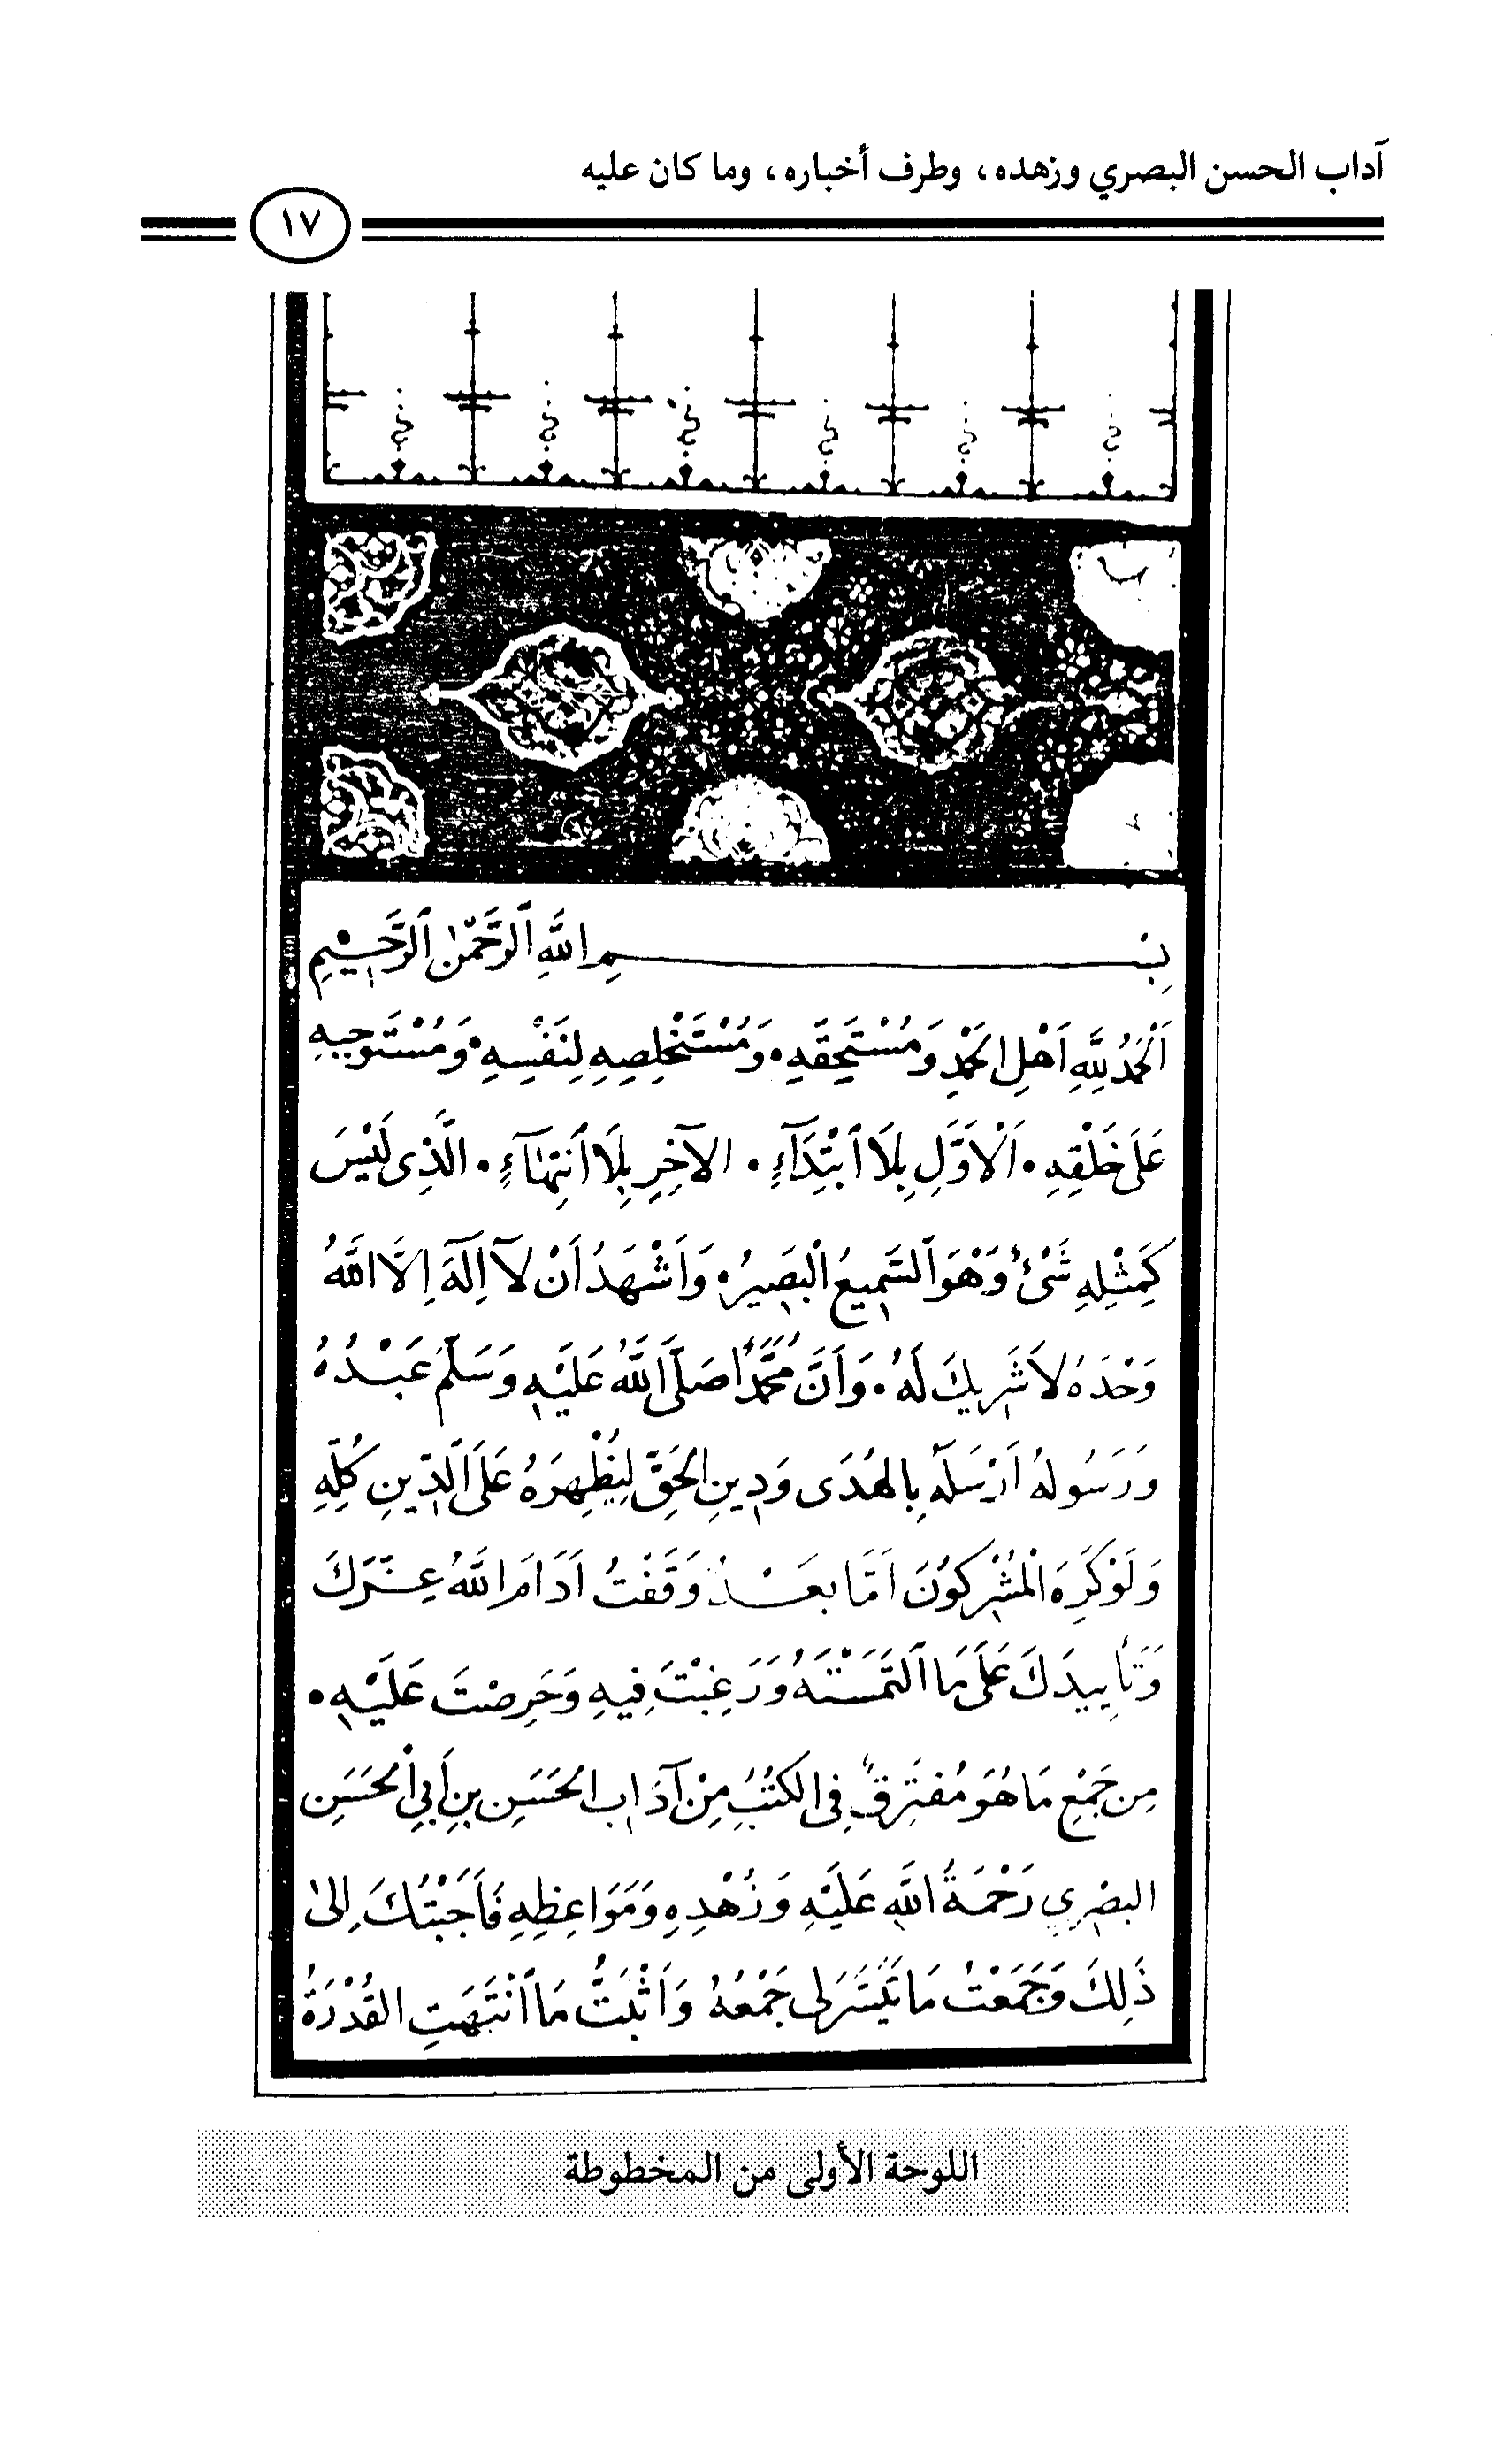 آداب الحسن البصري وزهده، وطرف أخباره، وما كان عليه
١٧
بِسْمِ اللَّهِ الرَّحْمٰنِ الرَّحِيمِ
اَلْحَمْدُ لِلَّهِ اَهْلِ الْحَمْدِ وَمُسْتَحِقِّهِ • وَمُسْتَخْلِصِهِ لِنَفْسِهِ • وَمُسْتَوْجِبِهِ
عَلَى خَلْقِهِ • اَلْاَوَّلِ بِلَا ابْتِدَآءٍ • الآخِرِ بِلَا انْتِهَآءٍ • الَّذِى لَيْسَ
كَمِثْلِهِ شَىْءٌ وَهُوَ السَّمِيعُ الْبَصِيرُ • وَاَشْهَدُ اَنْ لَآ اِلَهَ اِلَّا اللَّهُ
وَحْدَهُ لَا شَرِيكَ لَهُ • وَاَنَّ مُحَمَّدًا صَلَّى اللَّهُ عَلَيْهِ وَسَلَّمَ عَبْدُهُ
وَرَسُولُهُ اَرْسَلَهُ بِالهُدَى وَدِينِ الحَقِّ لِيُظْهِرَهُ عَلَى الدِّينِ كُلِّهِ
وَلَوْ كَرِهَ الْمُشْرِكُونَ اَمَّا بَعْدُ وَقَفْتُ اَدَامَ اللَّهُ عِزَّكَ
وَتَأْيِيدَكَ عَلَى مَا الْتَمَسْتَهُ وَرَغِبْتَ فِيهِ وَحَرِصْتَ عَلَيْهِ •
مِن جَمْعِ مَا هُوَ مُفْتَرِقٌ فِى الكُتُبِ مِنْ آدَابِ الحَسَنِ بنِ أَبِي الحَسَنِ
البصْرِي رَحْمَةُ اللَّهِ عَلَيْهِ وَزُهْدِهِ وَمَوَاعِظِهِ فَاَجَبْتُكَ اِلىٰ
ذَلِكَ وَجَمَعْتُ مَا تَيَسَّرَ لِى جَمْعُهُ وَاَثْبَتُّ مَا انْتَهَتِ القُدْرَةُ
اللوحة الأولى من المخطوطة